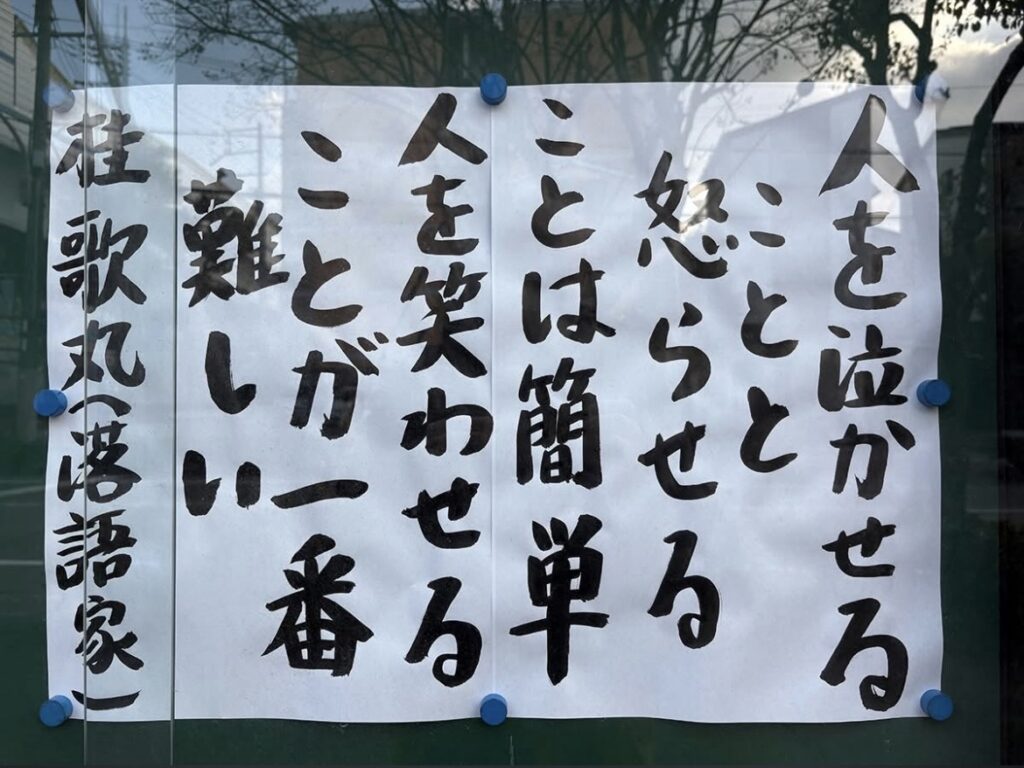 人を泣かせる
ことと
怒らせる
ことは簡単
人を笑わせる
ことが一番
難しい
桂歌丸（落語家）